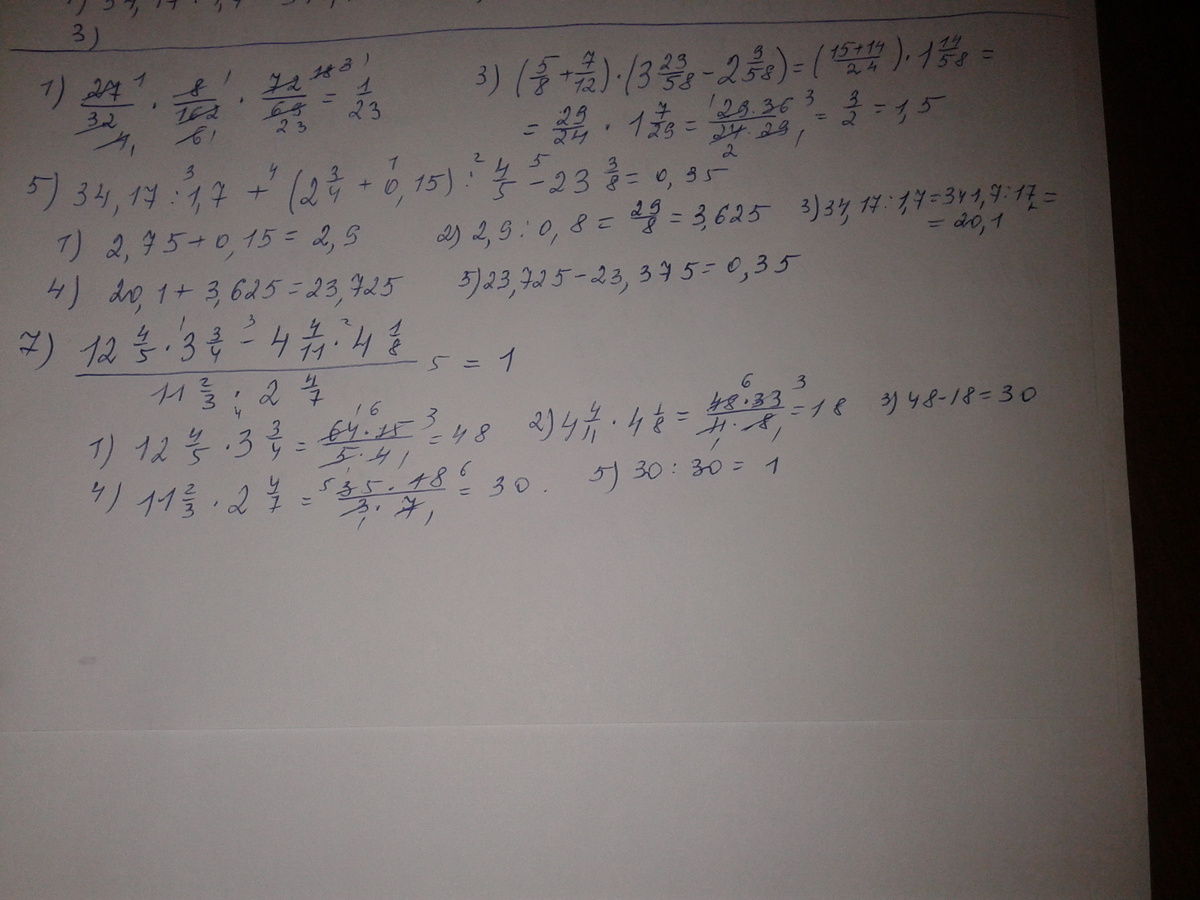 3)
1) 27/32 · 8/162 · 72/69 = 1/23
3) (5/8 + 7/12) · (3 23/58 - 2 9/58) = (15+14/24) · 1 14/58 =
= 29/24 · 1 7/29 = 29·36/24·29 = 3/2 = 1,5
5) 34,17 : 1,7 + (2 3/4 + 0,15) : 4/5 - 23 3/8 = 0,35
1) 2,75 + 0,15 = 2,9 2) 2,9 : 0,8 = 29/8 = 3,625 3) 34,17 : 1,7 = 341,7 : 17 =
= 20,1
4) 20,1 + 3,625 = 23,725 5) 23,725 - 23,375 = 0,35
7) 12 4/5 · 3 3/4 - 4 4/11 · 4 1/8
11 2/3 · 2 4/7 = 1
1) 12 4/5 · 3 3/4 = 64·15/5·4 = 48 2) 4 4/11 · 4 1/8 = 48·33/11·8 = 18 3) 48-18 = 30
4) 11 2/3 · 2 4/7 = 35·18/3·7 = 30. 5) 30 : 30 = 1